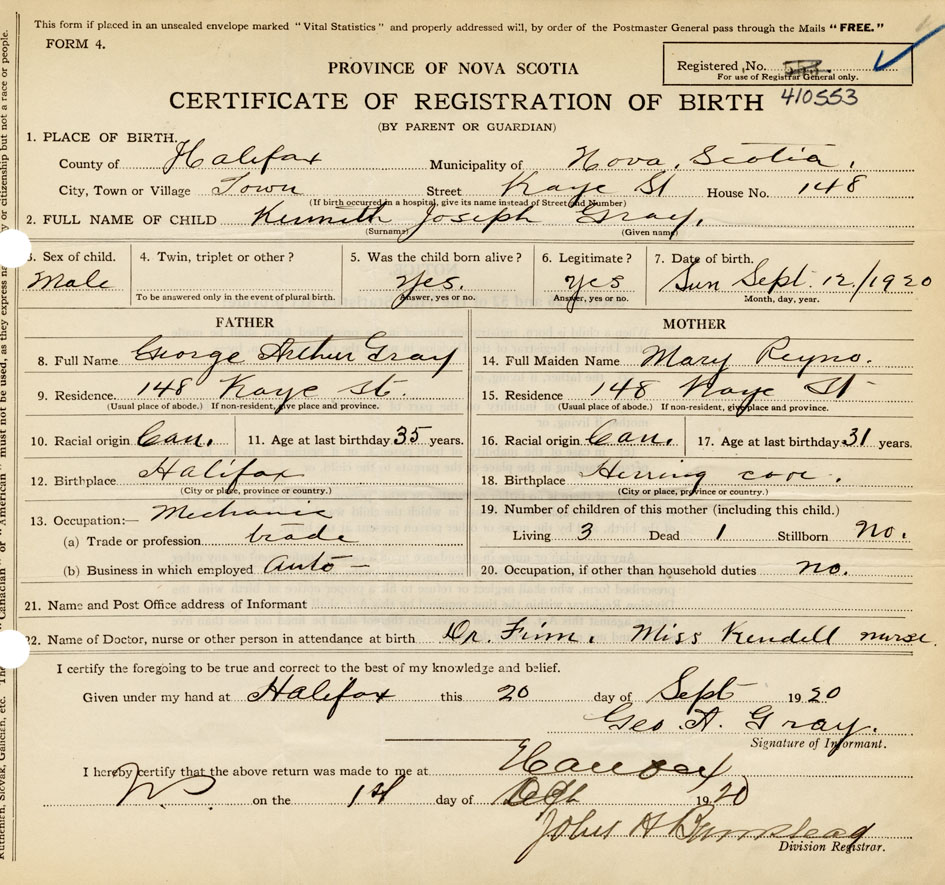 This form if placed in an unsealed envelope marked "Vital Statistics" and properly addressed will, by order of the Postmaster General pass through the Mails "FREE."
FORM 4.
Registered No.
For use of Registrar General only.
PROVINCE OF NOVA SCOTIA
CERTIFICATE OF REGISTRATION OF BIRTH 410553
(BY PARENT OR GUARDIAN)
1. PLACE OF BIRTH.
County of Halifax Municipality of Nova Scotia.
City, Town or Village Town Street Kaye St House No. 148
(If birth occurred in a hospital, give its name instead of Street and Number)
2. FULL NAME OF CHILD Kenneth Joseph Gray.
(Surname) (Given name)
3. Sex of child. 4. Twin, triplet or other? 5. Was the child born alive? 6. Legitimate? 7. Date of birth.
Male Yes. Yes Sun Sept. 12/1920
To be answered only in the event of plural birth. Answer, yes or no. Answer, yes or no. Month, day, year.
FATHER MOTHER
8. Full Name George Arthur Gray 14. Full Maiden Name Mary Reyno.
9. Residence 148 Kaye St. 15. Residence 148 Kaye St
(Usual place of abode.) If non-resident, give place and province. (Usual place of abode.) If non-resident, give place and province.
10. Racial origin Can. 11. Age at last birthday 35 years. 16. Racial origin Can. 17. Age at last birthday 31 years.
12. Birthplace Halifax 18. Birthplace Herring cove.
(City or place, province or country.) (City or place, province or country.)
13. Occupation:— Mechanic 19. Number of children of this mother (including this child.)
(a) Trade or profession trade Living 3 Dead 1 Stillborn No.
(b) Business in which employed Auto — 20. Occupation, if other than household duties no.
21. Name and Post Office address of Informant
22. Name of Doctor, nurse or other person in attendance at birth Dr. Finn. Miss Kendell nurse.
I certify the foregoing to be true and correct to the best of my knowledge and belief.
Given under my hand at Halifax this 20 day of Sept 1920
Geo A. Gray.
Signature of Informant.
I hereby certify that the above return was made to me at
on the 1st day of 1920
John H Barnstead
Division Registrar.
Ruthenian, Slovak, Galician, etc. "Canadian" or "American" must not be used, as they express or citizenship but not a race or people.